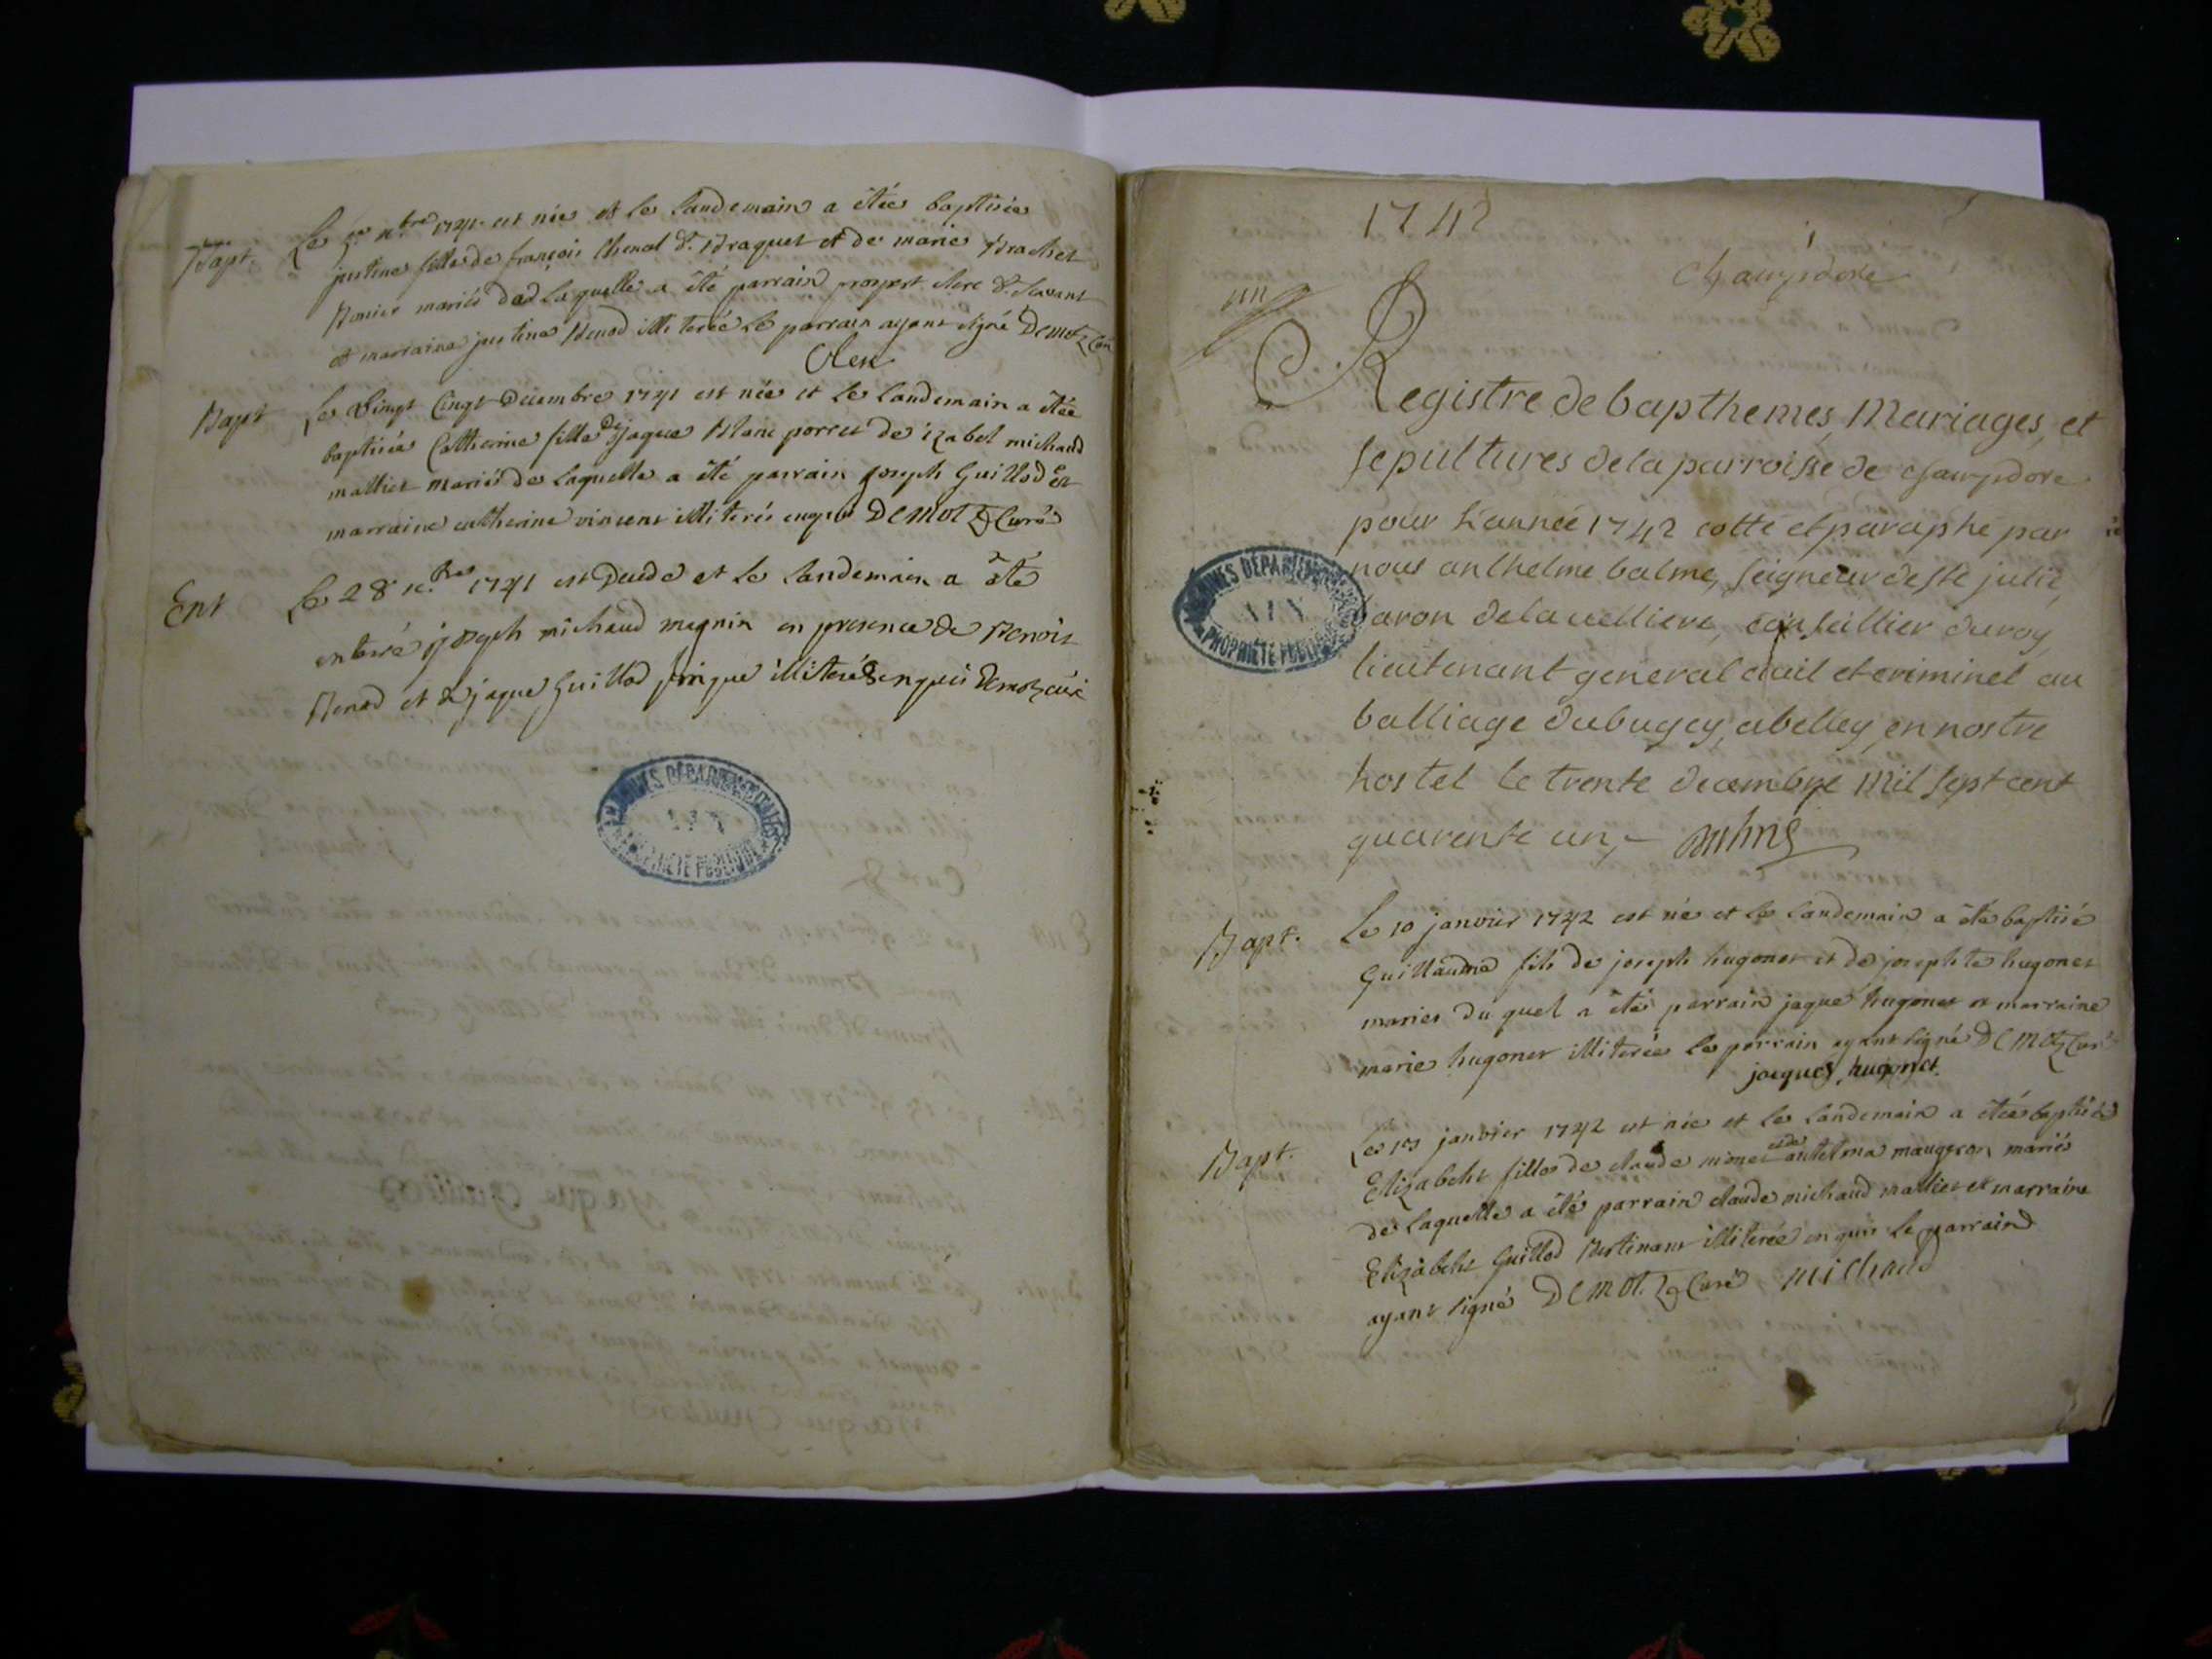 Bapt. Le 1741 est née et le landemain a étée baptisée
justine fille de françois Chenod d. Braquet et de marie Brachet
Bonier mariés de laquelle a été parrain prospert clerc d. Savant
et marraine justine Benod illiterée le parrain ayant signé Demotz Curé
Clerc
Bapt Le vingt Cinqt Decembre 1741 est née et le landemain a étée
baptisée Catherine fille de jaque Blanc porret de izabel michaud
malliet mariés de laquelle a été parrain joseph Guillod et
marraine catherine vincent illiterés enquis Demotz Curé
Ent Le 28 x.bre 1741 est Decedé et le landemain a été
enteré joseph michaud magnin en presence de Benoit
Benod et de jaque Guillod illiterés enquis Demotz curé
ARCHIVES DÉPARTEMENTALES
AIN
PROPRIÉTÉ PUBLIQUE
1742
1
Champdore
un
Registre de bapthemes, Mariages, et
sepultures de la parroisse de champdore
pour l'année 1742 cotté et paraphé par
nous anthelme balme, seigneur de ste julie,
baron de la velliere, conseillier du roy,
lieutenant general civil et criminel au
balliage du bugey, a belley, en nostre
hostel le trente decembre mil sept cent
quarente un,- balme
ARCHIVES DÉPARTEMENTALES
AIN
PROPRIÉTÉ PUBLIQUE
Bapt. Le 10 janvier 1742 est né et le landemain a été baptisé
Guillaume fils de joseph hugonet et de josephte hugonet
mariés du quel a été parrain jaque hugonet et marraine
marie hugonet illiterée le parrain ayant signé Demotz Curé
jacques hugonet
Bapt. Le janvier 1742 est née et le landemain a étée baptisée
Elizabeht fille de claude nimet et de antelma maugeron mariés
de laquelle a été parrain claude michaud mallier et marraine
Elizabeht Guillod Bertinant illiterée enquis le parrain
ayant signé Demotz Curé michaud